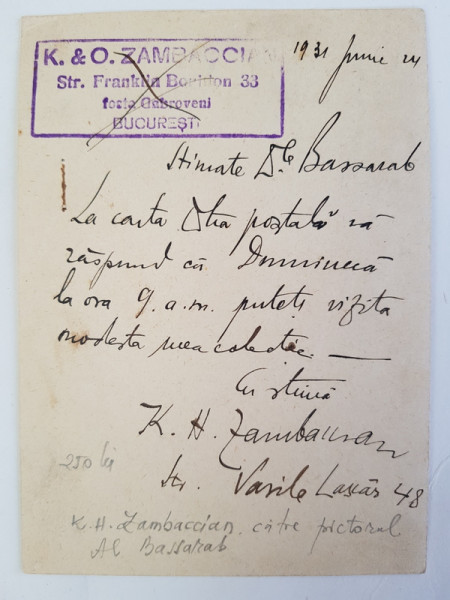 K. & O. ZAMBACCIAN
Str. Franklin Bouillon 33
foste Gabroveni
BUCUREȘTI
1931 Junie 24
Stimate Dle Bassarab
La carta Dtra poștală vă
răspund că Duminică
la ora 9 a.m. puteți vizita
modesta mea colecție. —
Cu stimă
K. H. Zambaccian
Str. Vasile Lascăr 48
250 lei
K. H. Zambaccian, către pictorul
Al Bassarab